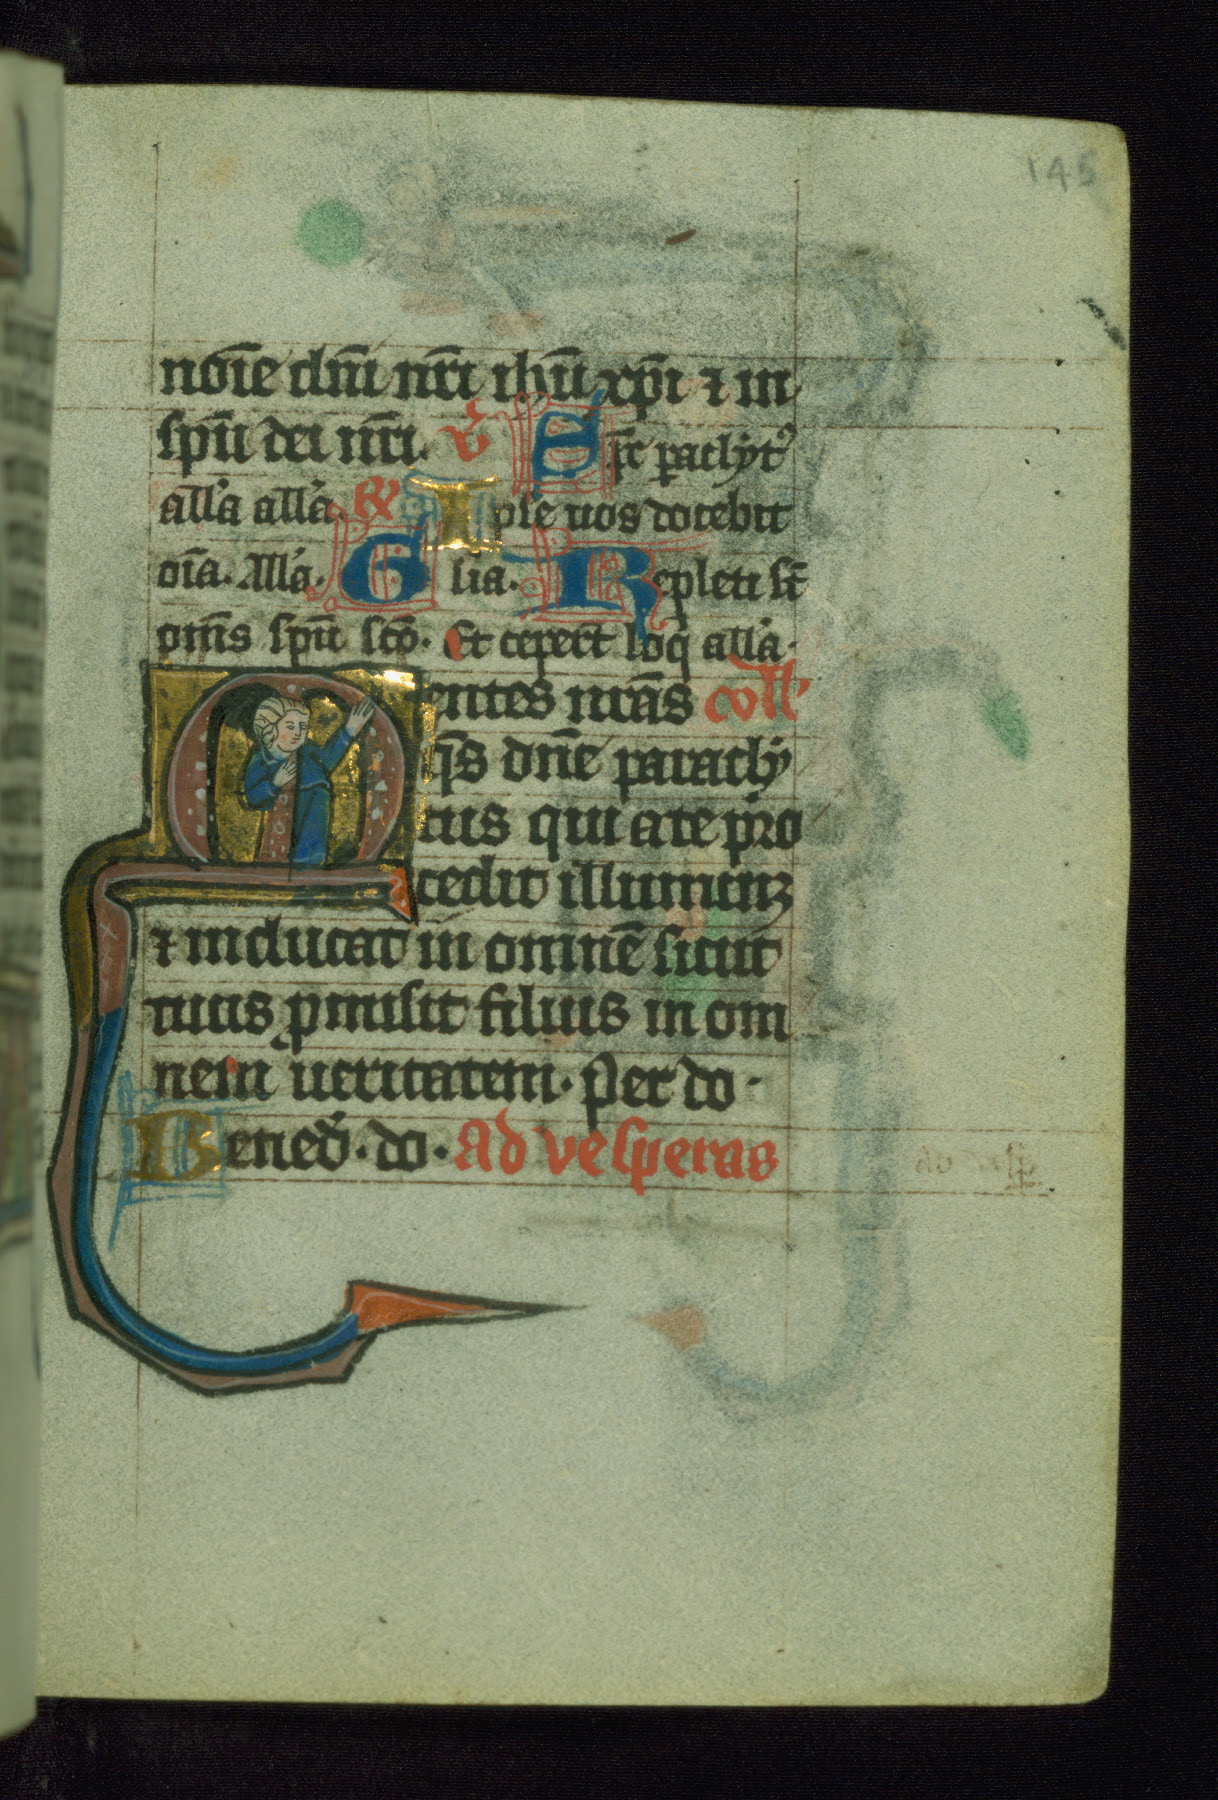 145
noīe dn̄i nr̄i ihū xp̄i ⁊ in
spū dei nr̄i. v̄ Sp̄c paclyt᷒
all'a all'a. R Ipse uos docebit
oīa. All'a. Glia. Repleti st̄
om̄s spū scō. Et ceper̄t loq̄ all'a.
Mentes nr̄as coll'
q̄s dn̄e paracly
tus qui a te pro
cedit illuminꝫ
⁊ inducat in omnē sicut
tuus p̄misit filius in om
nem ueritatem. Per do.
Bened̄. do. Ad vesperas